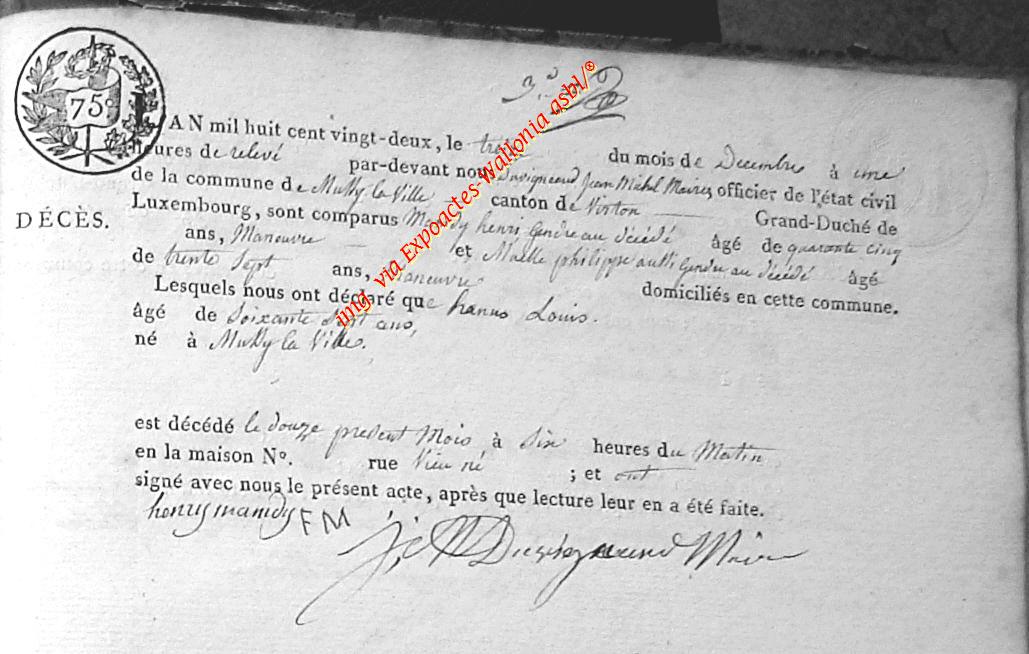 75
3.
DÉCÈS.
AN mil huit cent vingt-deux, le treize du mois de Decembre à une
heures de relevé par-devant nous Duvigneaud, Jean Michel Maire, officier de l'état civil
de la commune de Mussy la Ville canton de Virton Grand-Duché de
Luxembourg, sont comparus Mandy henri Gendre au décédé âgé de quarante cinq
ans, Maneuvre et philippe aussi Gendre au décédé âgé
de trente sept ans, Maneuvre domiciliés en cette commune.
Lesquels nous ont déclaré que hanus Louis.
âgé de Soixante Sept ans,
né à Mussy la Ville.
est décédé le douze present Mois à Six heures du Matin
en la maison N°. rue ; et ont
signé avec nous le présent acte, après que lecture leur en a été faite.
henry mandy F M
Maire
img. via Expoactes-Wallonia asbl/®